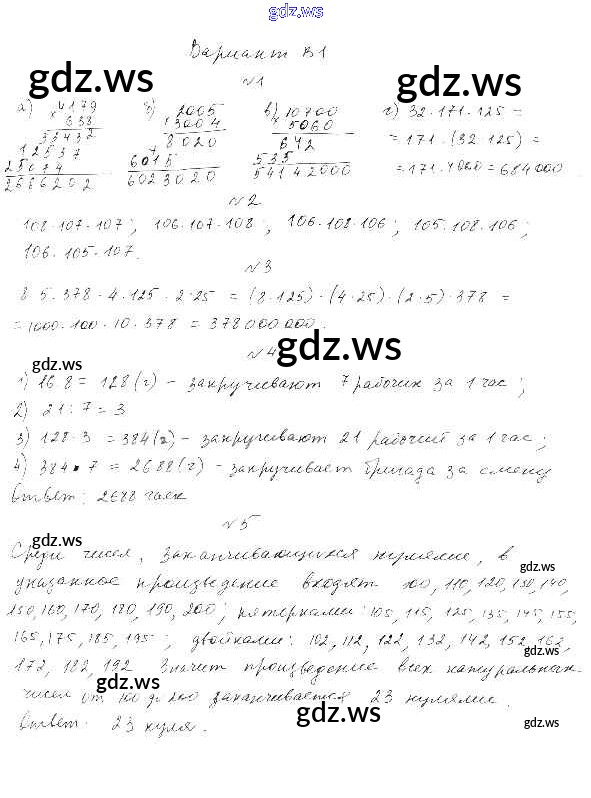 gdz.ws
Вариант В1
gdz.ws
gdz.ws
№1
а) × 4179
638
33432
12537
25074
2686202
б) 2005
× 3004
8020
+ 6015
6023020
в) × 10700
5060
642
535
54142000
г) 32·171·125 =
= 171·(32·125) =
= 171·4000 = 684000
№2
108·107·107; 106·107·108; 106·108·106; 105·108·106;
106·105·107.
№3
8·5·378·4·125·2·25 = (8·125)·(4·25)·(2·5)·378 =
= 1000·100·10·378 = 378000000.
№4
gdz.ws
gdz.ws
1) 16·8 = 128 (г) - закручивают 7 рабочих за 1 час;
2) 21:7 = 3
3) 128·3 = 384 (г) - закручивают 21 рабочий за 1 час;
4) 384·7 = 2688 (г) - закручивает бригада за смену
Ответ: 2688 гаек
№5
gdz.ws
Среди чисел, заканчивающихся нулями, в
gdz.ws
указанное произведение входят 100, 110, 120, 130, 140,
150, 160, 170, 180, 190, 200; пятерками: 105, 115, 125, 135, 145, 155,
165, 175, 185, 195; двойками: 102, 112, 122, 132, 142, 152, 162,
gdz.ws
172, 182, 192. Значит произведение всех натуральных
gdz.ws
чисел от 100 до 200 заканчивается 23 нулями.
gdz.ws
Ответ: 23 нуля.
gdz.ws